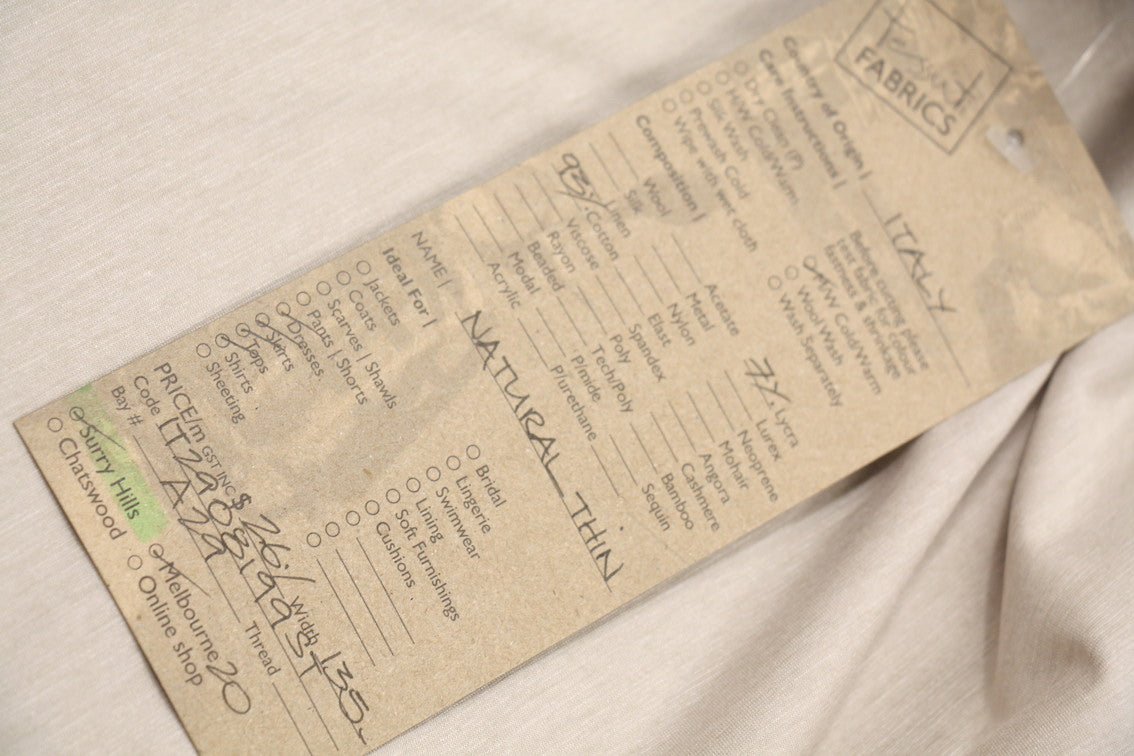 Tessuti
FABRICS
Country of Origin | ITALY
Care Instructions |
Dry Clean (P)
H/W Cold/Warm
Silk Wash
Prewash Cold
Wipe with wet cloth
Before cutting please
test fabric for colour
fastness & shrinkage
M/W Cold/Warm
Wool Wash
Wash Separately
Composition |
Wool
Silk
Linen
93% Cotton
Viscose
Rayon
Beaded
Modal
Acrylic
Acetate
Metal
Nylon
Elast
Spandex
Poly
Tech/Poly
P/mide
P/urethane
7% Lycra
Lurex
Neoprene
Mohair
Angora
Cashmere
Bamboo
Sequin
NAME | NATURAL THIN
Ideal For |
Jackets
Coats
Scarves | Shawls
Pants | Shorts
Dresses
Skirts
Tops
Shirts
Sheeting
Bridal
Lingerie
Swimwear
Lining
Soft Furnishings
Cushions
PRICE/m GST INC $ 26./ Width 135
Code
Bay # A29 Thread
Surry Hills
Chatswood
Melbourne 20
Online shop